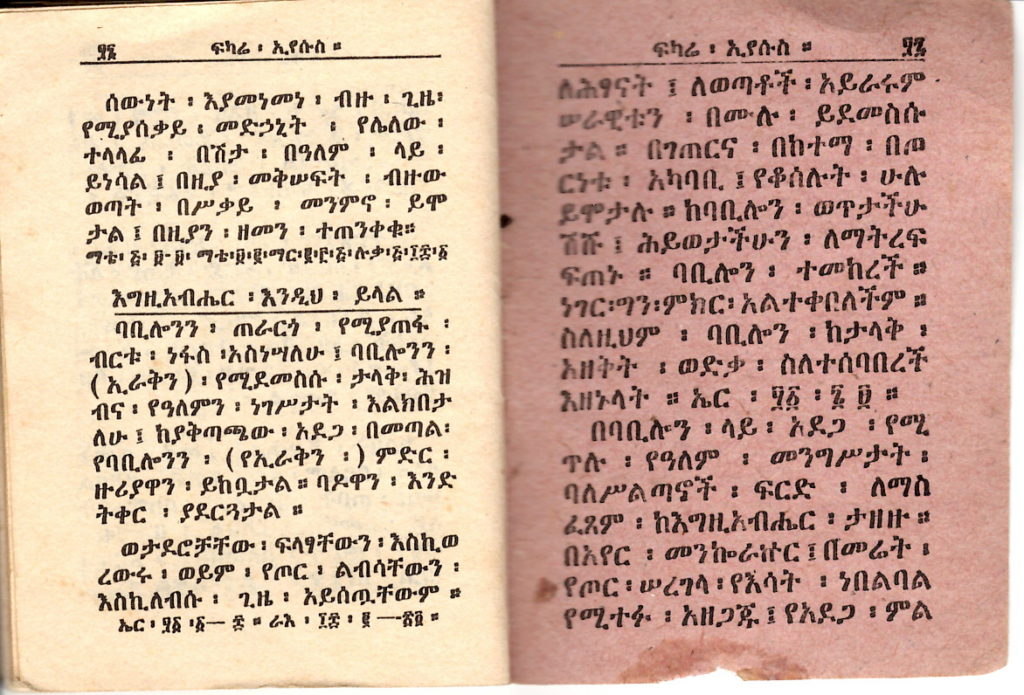 ፶፮
ፍካሬ ፡ ኢየሱስ ።
ሰውነት ፡ እያመነመነ ፡ ብዙ ፡ ጊዜ፡
የሚያሰቃይ ፡ መድኃኒት ፡ የሌለው ፡
ተላላፊ ፡ በሽታ ፡ በዓለም ፡ ላይ ፡
ይነሳል ፤ በዚያ ፡ መቅሠፍት ፡ ብዙው
ወጣት ፡ በሥቃይ ፡ መንምኖ ፡ ይሞ
ታል ፤ በዚያን ፡ ዘመን ፡ ተጠንቀቁ።
እግዚአብሔር ፡ እንዲህ ፡ ይላል ።
ባቢሎንን ፡ ጠራርጎ ፡ የሚያጠፋ ፡
ብርቱ ፡ ነፋስ ፡አስነሣለሁ ፤ ባቢሎንን ፡
(ኢራቅን) ፡ የሚደመስሱ ፡ ታላቅ፡ ሕዝ
ብና ፡ የዓለምን ፡ ነገሥታት ፡ እልክበታ
ለሁ ፤ ከያቅጣጫው ፡ አደጋ ፡ በመጣል፡
የባቢሎንን ፡ (የኢራቅን ፡) ምድር ፡
ዙሪያዋን ፡ ይከቧታል ። ባዶዋን ፡ እንድ
ትቀር ፡ ያደርጓታል ።
ወታደሮቻቸው ፡ ፍላፃቸውን ፡ እስኪወ
ረውሩ ፡ ወይም ፡ የጦር ፡ ልብሳቸውን ፡
እስኪለብሱ ፡ ጊዜ ፡ አይሰጧቸውም ።
ፍካሬ ፡ ኢየሱስ ።
፶፯
ለሕፃናት ፤ ለወጣቶች ፡ አይራሩም
ሠራዊቱን ፡ በሙሉ ፡ ይደመስሱ
ታል ። በገጠርና ፡ በከተማ ፡ በጦ
ርነቱ ፡ አካባቢ ፤ የቆሰሉት ፡ ሁሉ
ይሞታሉ ። ከባቢሎን ፡ ወጥታችሁ
ሽሹ ፤ ሕይወታችሁን ፡ ለማትረፍ
ፍጠኑ ። ባቢሎን ፡ ተመከረች ።
ነገር፡ግን፡ምክር፡ አልተቀበለችም ።
ስለዚህም ፡ ባቢሎን ፡ ከታላቅ ፡
አዘቅት ፡ ወድቃ ፡ ስለተሰባበረች
እዘኑላት ። ኤር ፡ ፶፩ ፡ ፯ ፱ ።
በባቢሎን ፡ ላይ ፡ አደጋ ፡ የሚ
ጥሉ ፡ የዓለም ፡ መንግሥታት ፡
ባለሥልጣኖች ፡ ፍርድ ፡ ለማስ
ፈጸም ፡ ከእግዚአብሔር ፡ ታዘዙ ።
በአየር ፡ መንኰራኩር ፤ በመሬት ፡
የጦር ፡ ሠረገላ ፡ የእሳት ፡ ነበልባል
የሚተፉ ፡ አዘጋጁ ፤ የአደጋ ፡ ምል